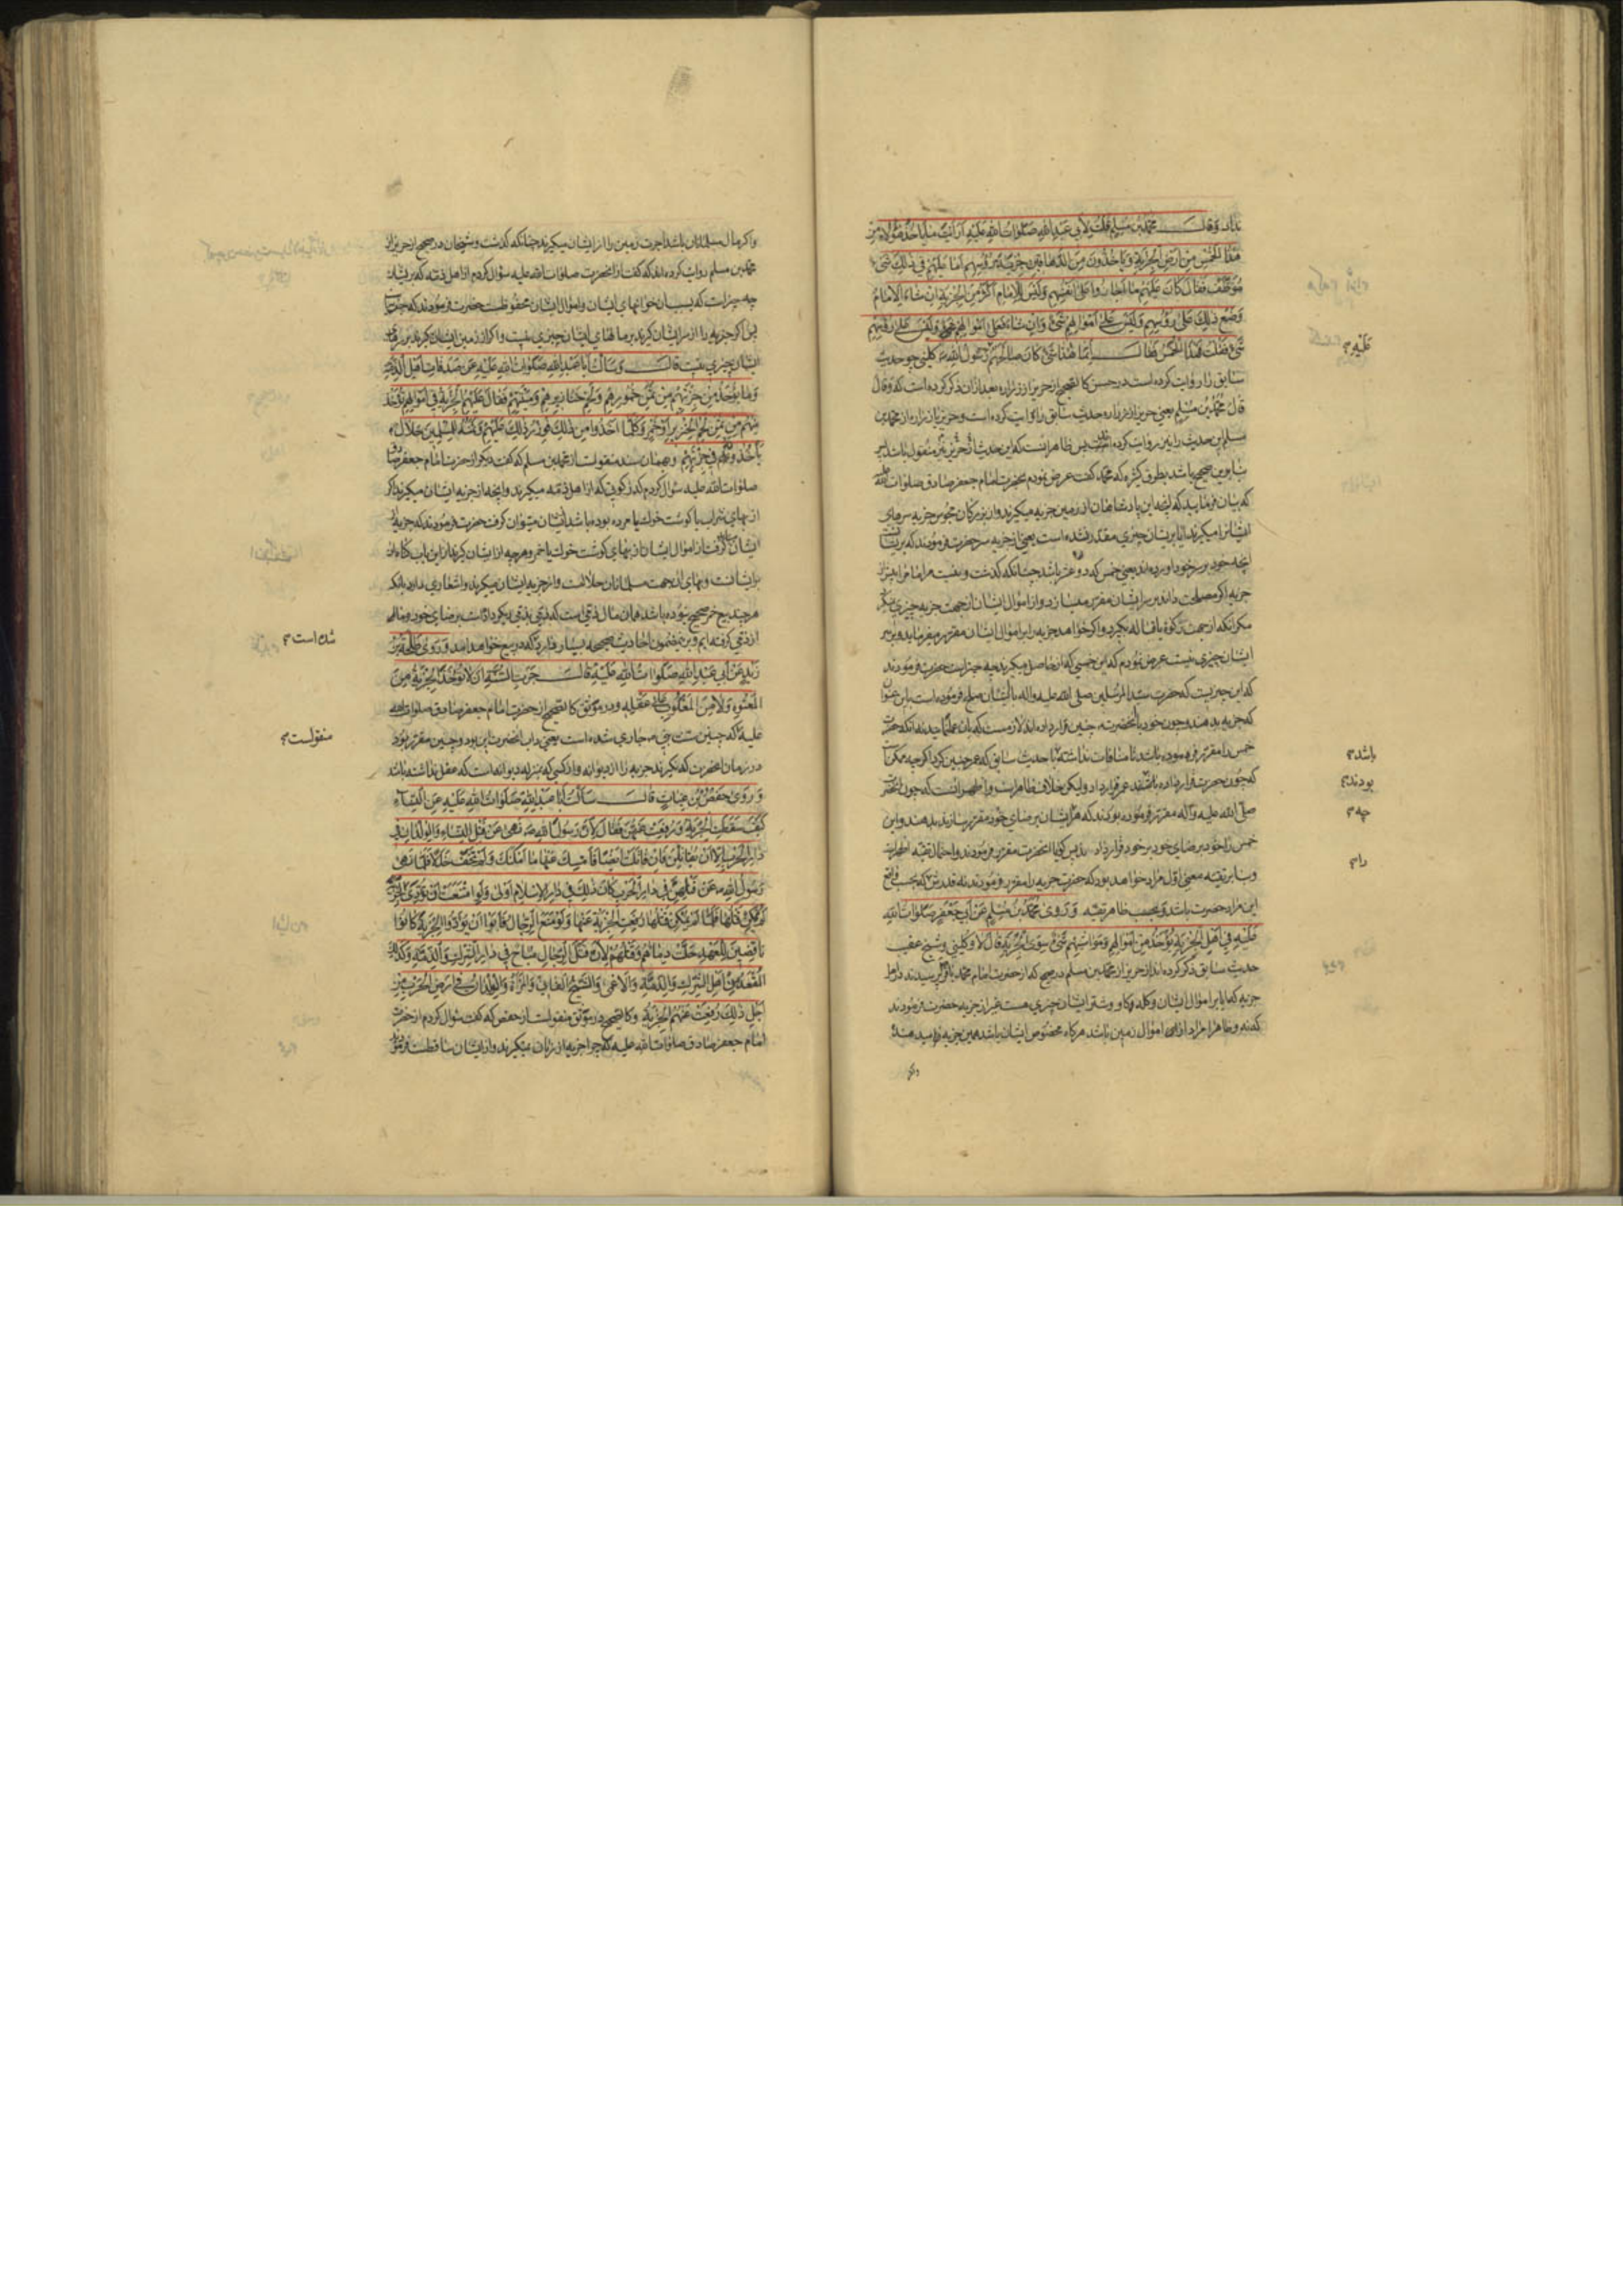 ندارد وقال محمد بن مسلم قلت لابی عبد الله صلوات الله علیه ارایت ما یاخذ هؤلاء من
هذا الخمس من ارض الجزیة ویاخذون من الدهاقین جزیة رؤسهم اما علیهم فی ذلک شیء
موظف فقال کان علیهم ما اجازوا علی انفسهم ولیس للامام اکثر من الجزیة ان شاء الامام
وضع ذلک علی رؤسهم ولیس علی اموالهم شیء وان شاء فعلی اموالهم ولیس علی رؤسهم
شیء فقلت فهذا الخمس فقال انما هذا شیء کان صالحهم رسول الله کلینی چو حدیث
سابق را روایت کرده است در حسن کالصحیح از حریز از زراره بعد از ان ذکر کرده است که وقال
قال محمد بن مسلم یعنی حریز از زراره حدیث سابق را روایت کرده است و حریز یا زراره از محمد بن
مسلم این حدیث را نیز روایت کرده است پس ظاهر انست که این حدیث از حریز نیز منقول باشد
بنابرین صحیح باشد بطرق کثیره که محمد گفت عرض نمودم بحضرت امام جعفر صادق صلوات الله
که بیان فرمایید که انچه این پادشاهان از زمین جزیه میگیرند و از بزرگان مجوس جزیه سرهای
ایشانرا میگیرند ایا بر ایشان چیزی مقدر نشده است یعنی از جزیه سر حضرت فرمودند که بر ایشان
انچه خود بر سر خود اورده اند یعنی خمس که دو عشر باشد چنانکه گذشت و نیست مر امام را بیش از
جزیه اگر مصلحت داند بر سر ایشان مقرر میسازد و از اموال ایشان از جهت جزیه چیزی
مگر انکه از جهت زکوة یا قباله بگیرد و اگر خواهد جزیه را بر اموال ایشان مقرر میفرماید و بر سر
ایشان چیزی نیست عرض نمودم که این خمسی که از حاصل میگیرند چه چیز است حضرت فرمودند
که این چیزیست که حضرت سید المرسلین صلی الله علیه واله با ایشان صلح فرموده است باین عنوان
که جزیه بدهند و چون خود با انحضرت چنین قرار داده اند لازمست که بان عمل نمایند نه انکه حضرت
خمس را مقرر فرموده باشد تا منافات نداشته با حدیث سابق که عمر چنین کرد اگرچه ممکن است
که چون حضرت قرار داده عمر قرار داد ولیکن خلاف ظاهر است و اظهر انست که چون حضرت
صلی الله علیه واله مقرر فرموده بودند که هر ایشان برضای خود مقرر سازند بدهند واین
خمس را خود برضای خود بر خود قرار دادند پس گویا انحضرت مقرر فرمودند و احتمال تقیه اظهر است
و بنابر تقیه معنی اول مراد خواهد بود که حضرت جزیه را مقرر فرمودند نه قدرش که بحسب واقع
این مراد حضرت باشد و بحسب ظاهر تقیه وروی محمد بن مسلم عن ابی جعفر صلوات الله
علیه فی اهل الجزیة یؤخذ من اموالهم ومواشیهم شیء سوی الجزیة قال لا و کلینی و شیخ عقب
حدیث سابق ذکر کرده اند از حریز از محمد بن مسلم در صحیح که از حضرت امام محمد باقر پرسیدند در اهل
جزیه که ایا بر اموال ایشان و گله و گاو و شتر ایشان چیزی هست غیر از جزیه حضرت فرمودند
که نه و ظاهرا مراد از این اموال زمین باشد هرگاه مخصوص ایشان باشد همین جزیه را میدهند
علیه
باشد
بودند
چه
را
واگر مال مسلمانان باشد اجرت زمین را از ایشان میگیرند چنانکه گذشت و شیخان در صحیح از حریز از
محمد بن مسلم روایت کرده اند که گفت از انحضرت صلوات الله علیه سؤال کردم از اهل ذمه که بر ایشان
چه چیز است که بسبب ان خونهای ایشان واموال ایشان محفوظست حضرت فرمودند که خراج
پس اگر جزیه را از سر ایشان گیرند بر مالهای ایشان چیزی نیست و اگر از زمین ایشان گیرند بر سرهای
ایشان چیزی نیست قال وسالت ابا عبد الله صلوات الله علیه عن صدقات اهل الذمة
وما یؤخذ من جزیتهم من ثمن خمورهم ولحم خنازیرهم ومیتتهم فقال علیهم الجزیة فی اموالهم تؤخذ
منهم من ثمن لحم الخنزیر او خمر وکلما اخذوا من ذلک فوزر ذلک علیهم وثمنه للمسلمین حلال
یاخذونه فی جزیتهم و بهمان سند منقولست از محمد بن مسلم که گفت دیگر از حضرت امام جعفر صادق
صلوات الله علیه سؤال کردم که زکوتی که از اهل ذمه میگیرند و انچه از جزیه ایشان میگیرند اگر
از بهای شراب یا گوشت خوک یا مرده بوده باشد از ایشان میتوان گرفت حضرت فرمودند که جزیه از
ایشان گرفت از اموال ایشان از بهای گوشت خوک یا خمر و هرچه از ایشان گیرند از این باب گناه ان
بر ایشانست و بهای ان جهت مسلمانان حلالست و از جزیه ایشان میگیرند و اشعاری دارد بانکه
هرچند بیع خمر صحیح نبوده باشد همان مال ذمی است که ذمی بذمی دیگر داده است برضای خود و ما
از ذمی گرفته ایم و برین مضمون احادیث صحیحه بسیار وارد که در بیع خواهد امد وروی طلحة بن
زید عن ابی عبد الله صلوات الله علیه قال جرت السنة ان لا تؤخذ الجزیة من
المعتوه ولا من المغلوب علی عقله و در موثق کالصحیح از حضرت امام جعفر صادق صلوات الله
علیه که چنین سنت نبی جاری شده است یعنی داب انحضرت این بود و چنین مقرر بود
در زمان انحضرت که نگیرند جزیه را از دیوانه و از کسی که بمنزله دیوانه است که عقل نداشته باشد
وروی حفص بن غیاث قال سالت ابا عبد الله صلوات الله علیه عن النساء
کیف سقطت الجزیة ورفعت عنهن فقال لان رسول الله نهی عن قتل النساء والولدان فی
دار الحرب الا ان یقاتلن فان قاتلت ایضا فامسک عنها ما امکنک ولم تخف خللا فلما نهی
رسول الله عن قتلهن فی دار الحرب کان ذلک فی دار الاسلام اولی ولو امتنعت ان تؤدی الجزیة
لم یمکن قتلها فلما لم یمکن قتلها رفعت الجزیة عنها ولو منع الرجال فابوا ان یؤدوا الجزیة کانوا
ناقضین للعهد وحلت دماؤهم وقتلهم لان قتل الرجال مباح فی دار الشرک والذمة وکذلک
المقعد من اهل الشرک والذمة والاعمی والشیخ الفانی والمراة والولدان فی ارض الحرب من
اجل ذلک رفعت عنهم الجزیة و کالصحیح در موثق منقولست از حفص که گفت سؤال کردم از حضرت
امام جعفر صادق صلوات الله علیه که چرا جزیه از زنان نمیگیرند و از ایشان ساقطست فرمود
شده است
منقولست